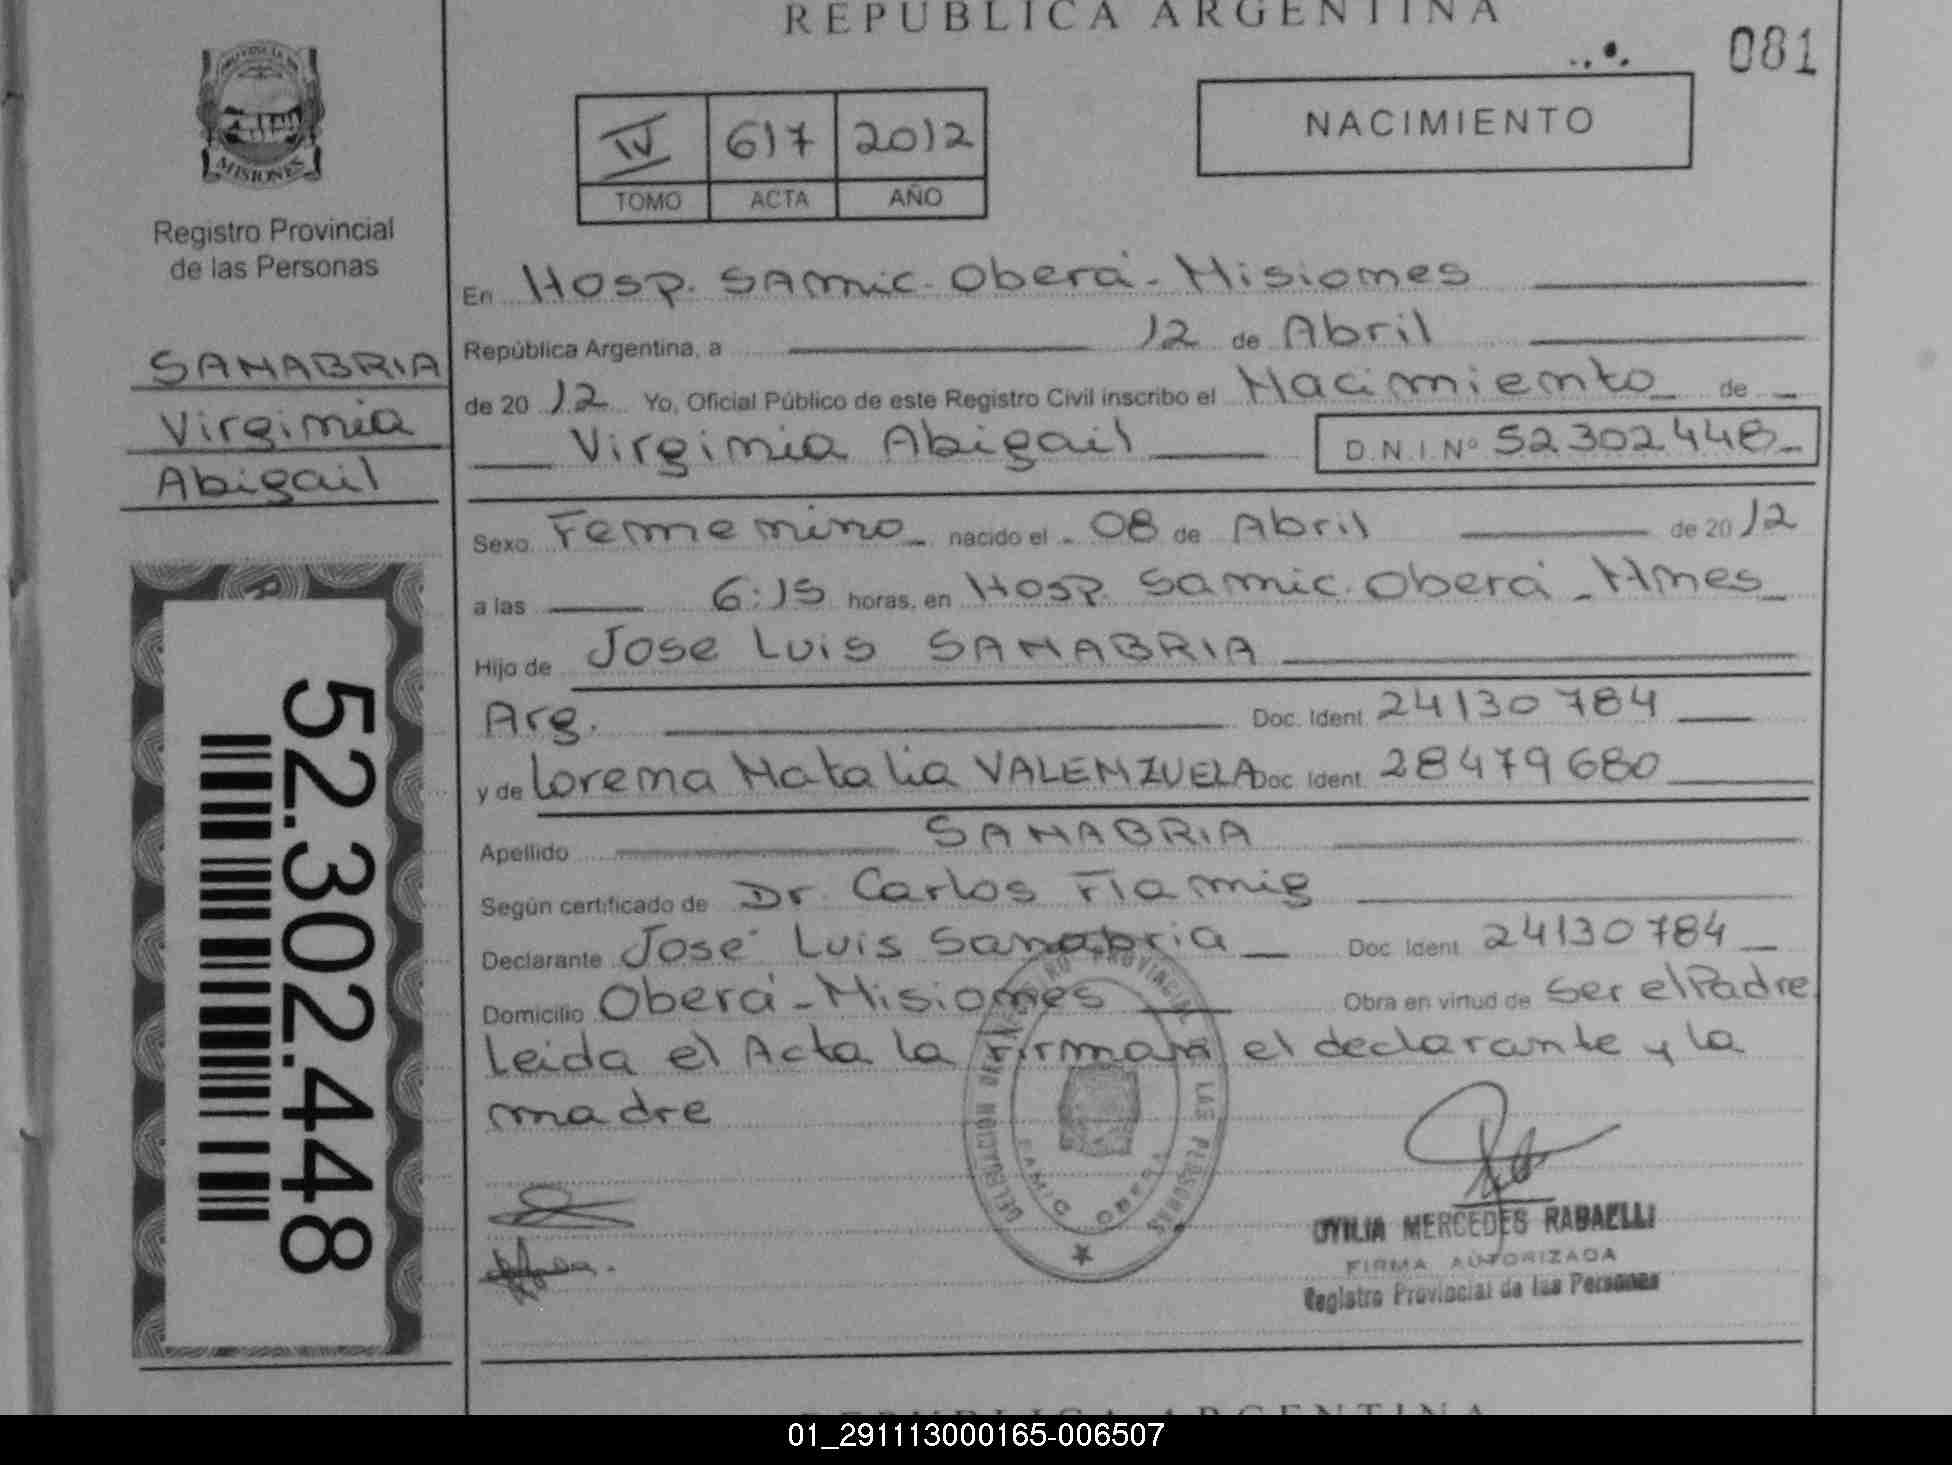 REPUBLICA ARGENTINA
081
MISIONES
Registro Provincial
de las Personas
SANABRIA
Virginia
Abigail
52.302.448
IV 617 2012
TOMO ACTA AÑO
NACIMIENTO
En Hosp. SAMIC. Oberá - Misiones
República Argentina, a 12 de Abril
de 20 12 Yo, Oficial Público de este Registro Civil inscribo el Nacimiento de
Virginia Abigail D.N.I.Nº 52302448
Sexo Femenino nacido el 08 de Abril de 20 12
a las 6:15 horas, en Hosp. Samic. Oberá - Mnes
Hijo de Jose Luis SANABRIA
Arg. Doc. Ident. 24130784
y de Lorena Natalia VALENZUELA Doc. Ident. 28479680
Apellido SANABRIA
Según certificado de Dr. Carlos Flamig
Declarante José Luis Sanabria Doc. Ident. 24130784
Domicilio Oberá - Misiones Obra en virtud de Ser el Padre
Leida el Acta la firman el declarante y la
madre
DELEGACION DEL REGISTRO PROVINCIAL DE LAS PERSONAS
SAMIC OBERA
OTILIA MERCEDES RABAELLI
FIRMA AUTORIZADA
Registro Provincial de las Personas
REPUBLICA ARGENTINA
01_291113000165-006507